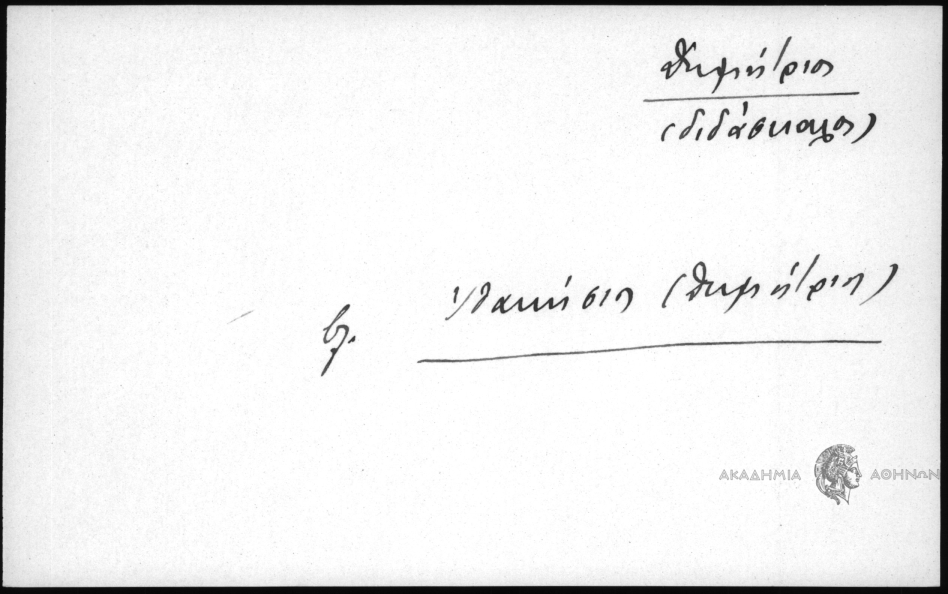 Δημήτριος
(διδάσκαλος)
βλ. Ἰθακήσιος (Δημήτριος)
ΑΚΑΔΗΜΙΑ ΑΘΗΝΩΝ